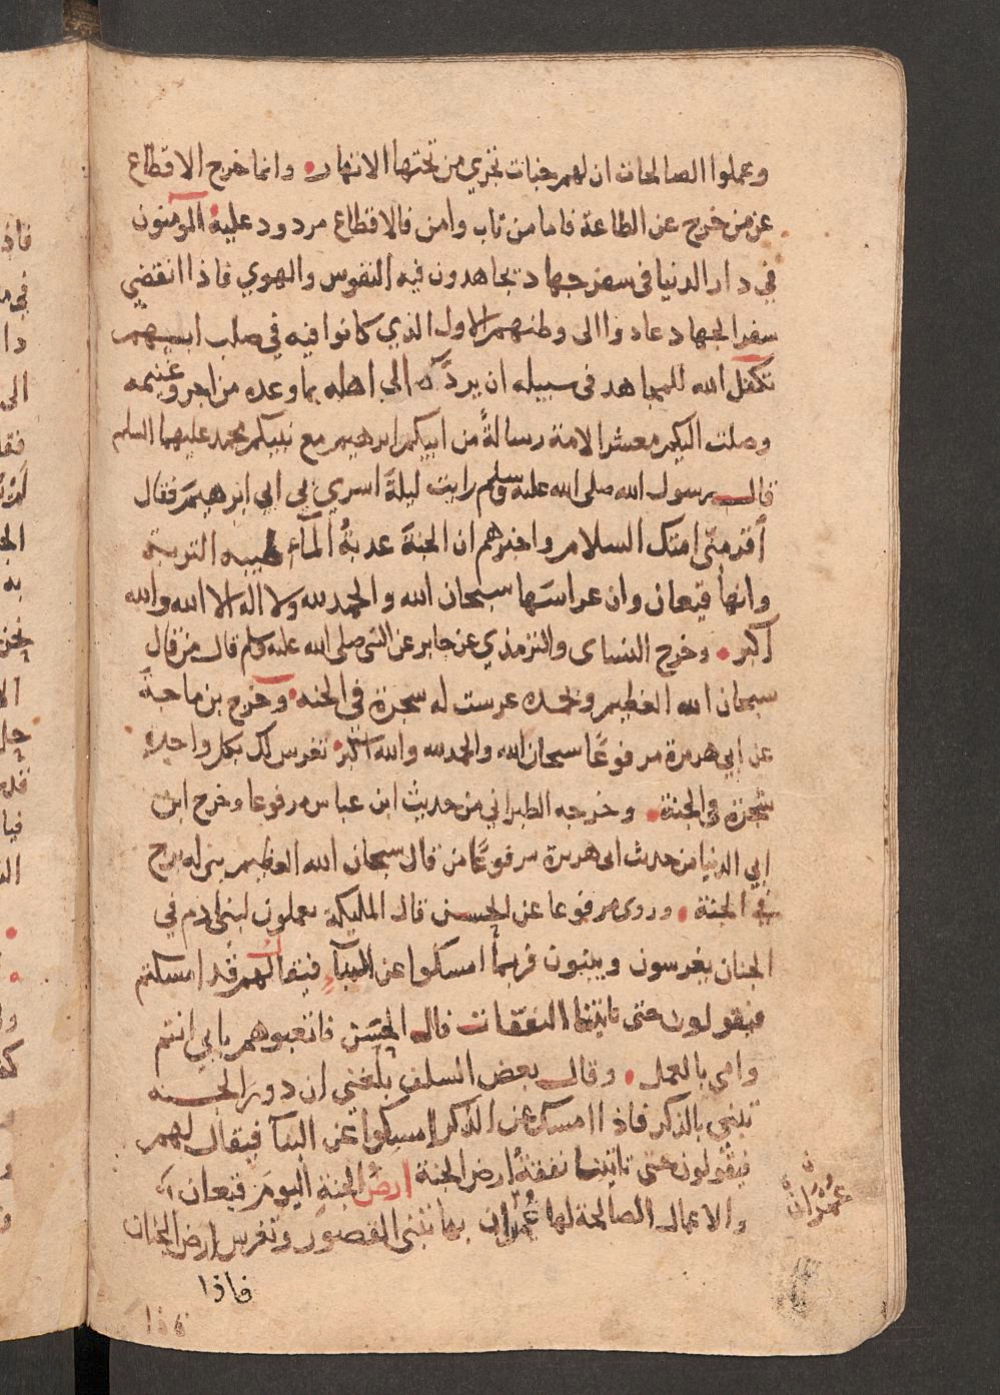 وعملوا الصالحات ان لهم جنات تجري من تحتها الانهار • وانما خرج الاقطاع
عن من خرج عن الطاعة فاما من تاب وامن فالاقطاع مردود عليه المومنون
في دار الدنيا في سفر جهاد يجاهدون فيه النفوس والهوي فاذا انقضي
سفر الجهاد عادوا الى وطنهم الاول الذي كانوا فيه في صلب ابيهم
تكفل الله للمجاهد في سبيله ان يرده الى اهله بما وعده من اجر وغنيمه
وصلت اليكم معشر الامة رسالةً من ابيكم ابرهيم مع نبيكم محمد عليهما السلم
قال رسول الله صلى الله عليه وسلم رايت ليلةً اسري بي ابي ابرهيم فقال
أقر مني امتك السلام واخبرهم ان الجنة عدبةُ المآء طيبه التربة
وانها قيعان وان غراسها سبحان الله والحمد لله ولا اله الا الله والله
أكبر • وخرج النساى والترمذي عن جابر عن النبي صلى الله عليه وسلم قال من قال
سبحان الله العظيم وبحمده غرست له شجرة في الجنه • وخرج بن ماجة
عن ابي هريرة مرفوعًا سبحان الله والحمد لله والله اكبر • تغرس لك بكل واحدة
شجرة في الجنة • وخرجه الطبراني من حديث ابن عباس مرفوعا وخرج ابن
ابي الدنيا من حديث ابى هريرة مرفوعًا من قال سبحان الله العظيم بني له برج
في الجنة • وروى مرفوعا عن الحسن قال المليكة يعملون لبني ادم في
الجنان يغرسون ويبنون فربما امسكوا عن البنآء فيقال لهم قد امسكتم
فيقولون حتى تاتينا النفقات قال الحسن فاتعبوهم بابي انتم
وامي بالعمل • وقال بعض السلف بلغني ان دور الجنه
تبني بالذكر فاذا امسك عن الذكر امسكوا عن البنآ فيقال لهم
فيقولون حتى تاتينا نفقةُ ارض الجنة ارض الجنةِ اليومَ قيعان
والاعمال الصالحة لها عُمْران بها تبنى القصور وتغرس ارض الجنان
ن
عُمْرَانٌ
فاذا
فاذا